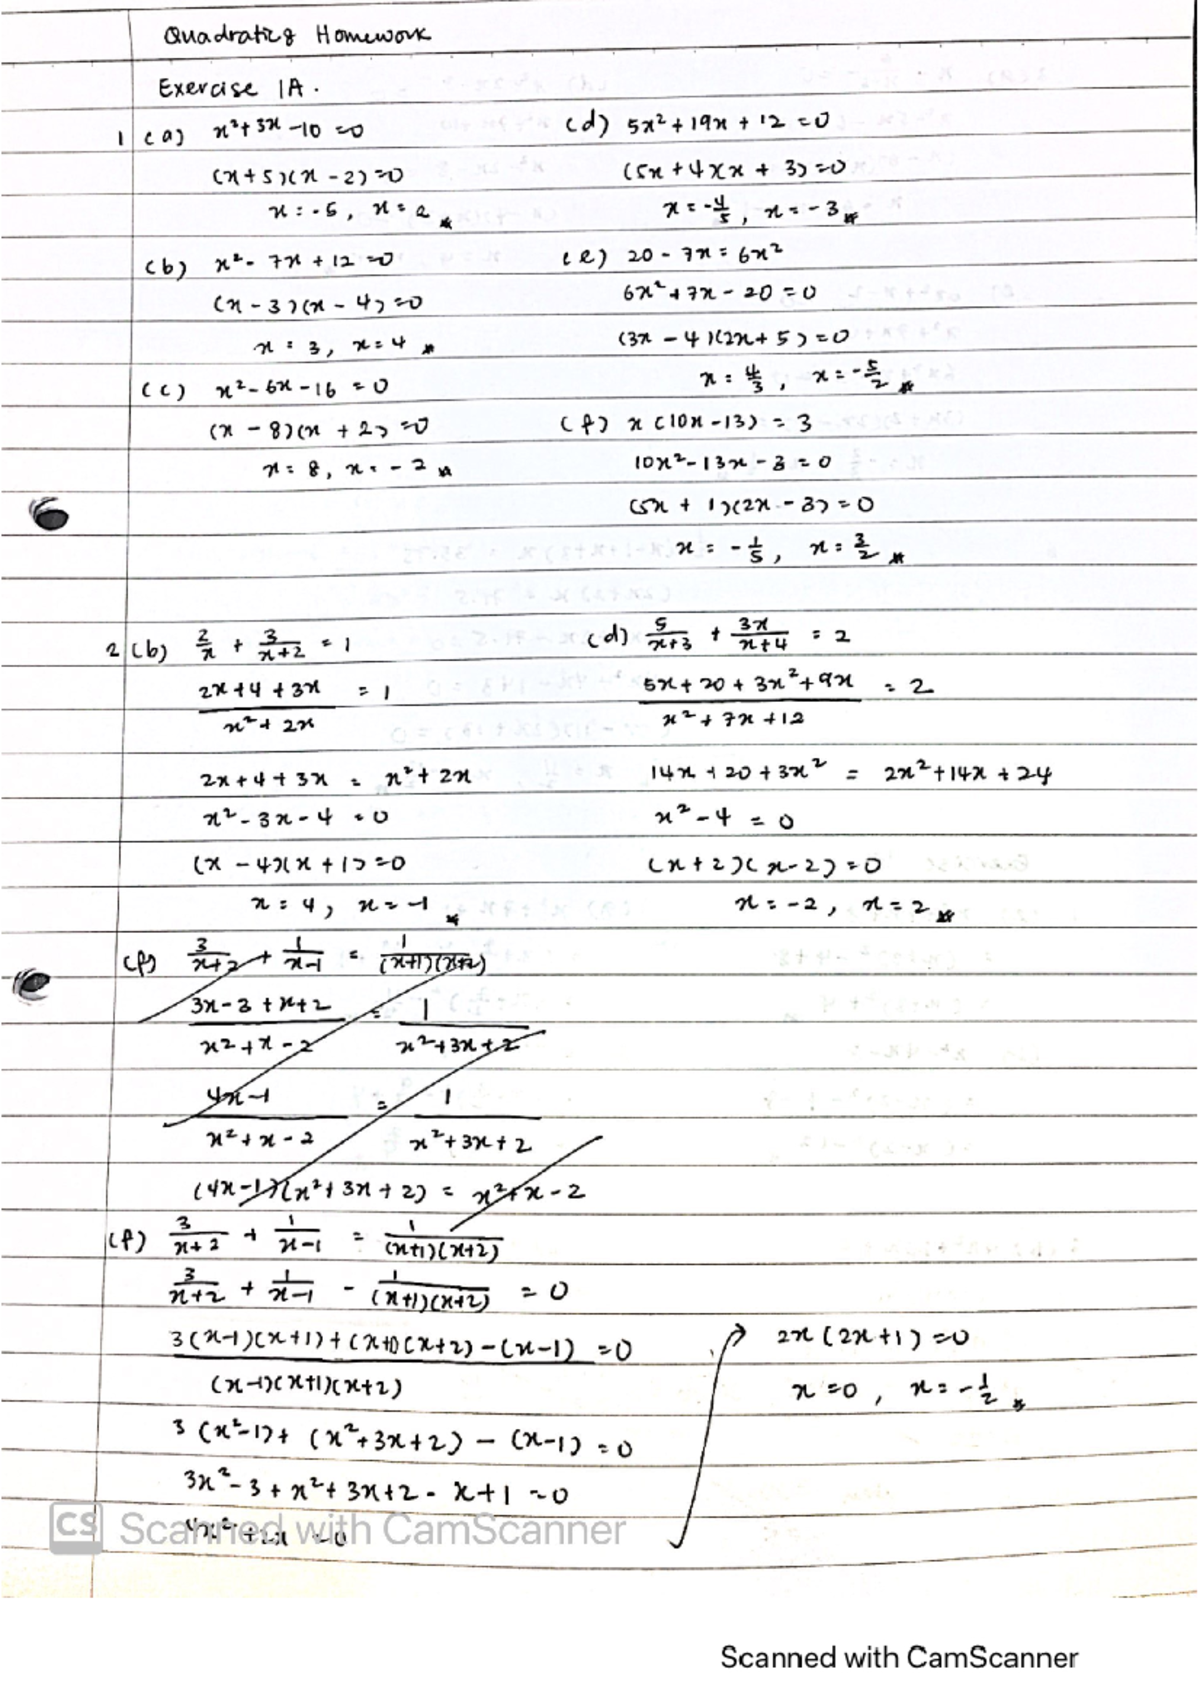 Quadratics Homework
Exercise 1A.
1 (a) x² + 3x - 10 = 0
(x + 5)(x - 2) = 0
x = -5, x = 2
(b) x² - 7x + 12 = 0
(x - 3)(x - 4) = 0
x = 3, x = 4
(c) x² - 6x - 16 = 0
(x - 8)(x + 2) = 0
x = 8, x = -2
(d) 5x² + 19x + 12 = 0
(5x + 4)(x + 3) = 0
x = -4/5, x = -3
(e) 20 - 7x = 6x²
6x² + 7x - 20 = 0
(3x - 4)(2x + 5) = 0
x = 4/3, x = -5/2
(f) x(10x - 13) = 3
10x² - 13x - 3 = 0
(5x + 1)(2x - 3) = 0
x = -1/5, x = 3/2
2 (b) 2/x + 3/(x+2) = 1
(2x + 4 + 3x)/(x² + 2x) = 1
2x + 4 + 3x = x² + 2x
x² - 3x - 4 = 0
(x - 4)(x + 1) = 0
x = 4, x = -1
(d) 5/(x+3) + 3x/(x+4) = 2
(5x + 20 + 3x² + 9x)/(x² + 7x + 12) = 2
14x + 20 + 3x² = 2x² + 14x + 24
x² - 4 = 0
(x + 2)(x - 2) = 0
x = -2, x = 2
(f) 3/(x+2) + 1/(x-1) = 1/((x+1)(x+2))
(3x - 3 + x + 2)/(x² + x - 2) = 1/(x² + 3x + 2)
(4x - 1)/(x² + x - 2) = 1/(x² + 3x + 2)
(4x - 1)(x² + 3x + 2) = x² + x - 2
(f) 3/(x+2) + 1/(x-1) = 1/((x+1)(x+2))
3/(x+2) + 1/(x-1) - 1/((x+1)(x+2)) = 0
(3(x-1)(x+1) + (x+1)(x+2) - (x-1))/((x-1)(x+1)(x+2)) = 0
3(x² - 1) + (x² + 3x + 2) - (x - 1) = 0
3x² - 3 + x² + 3x + 2 - x + 1 = 0
4x² + 2x = 0
2x(2x + 1) = 0
x = 0, x = -1/2
CS Scanned with CamScanner
Scanned with CamScanner